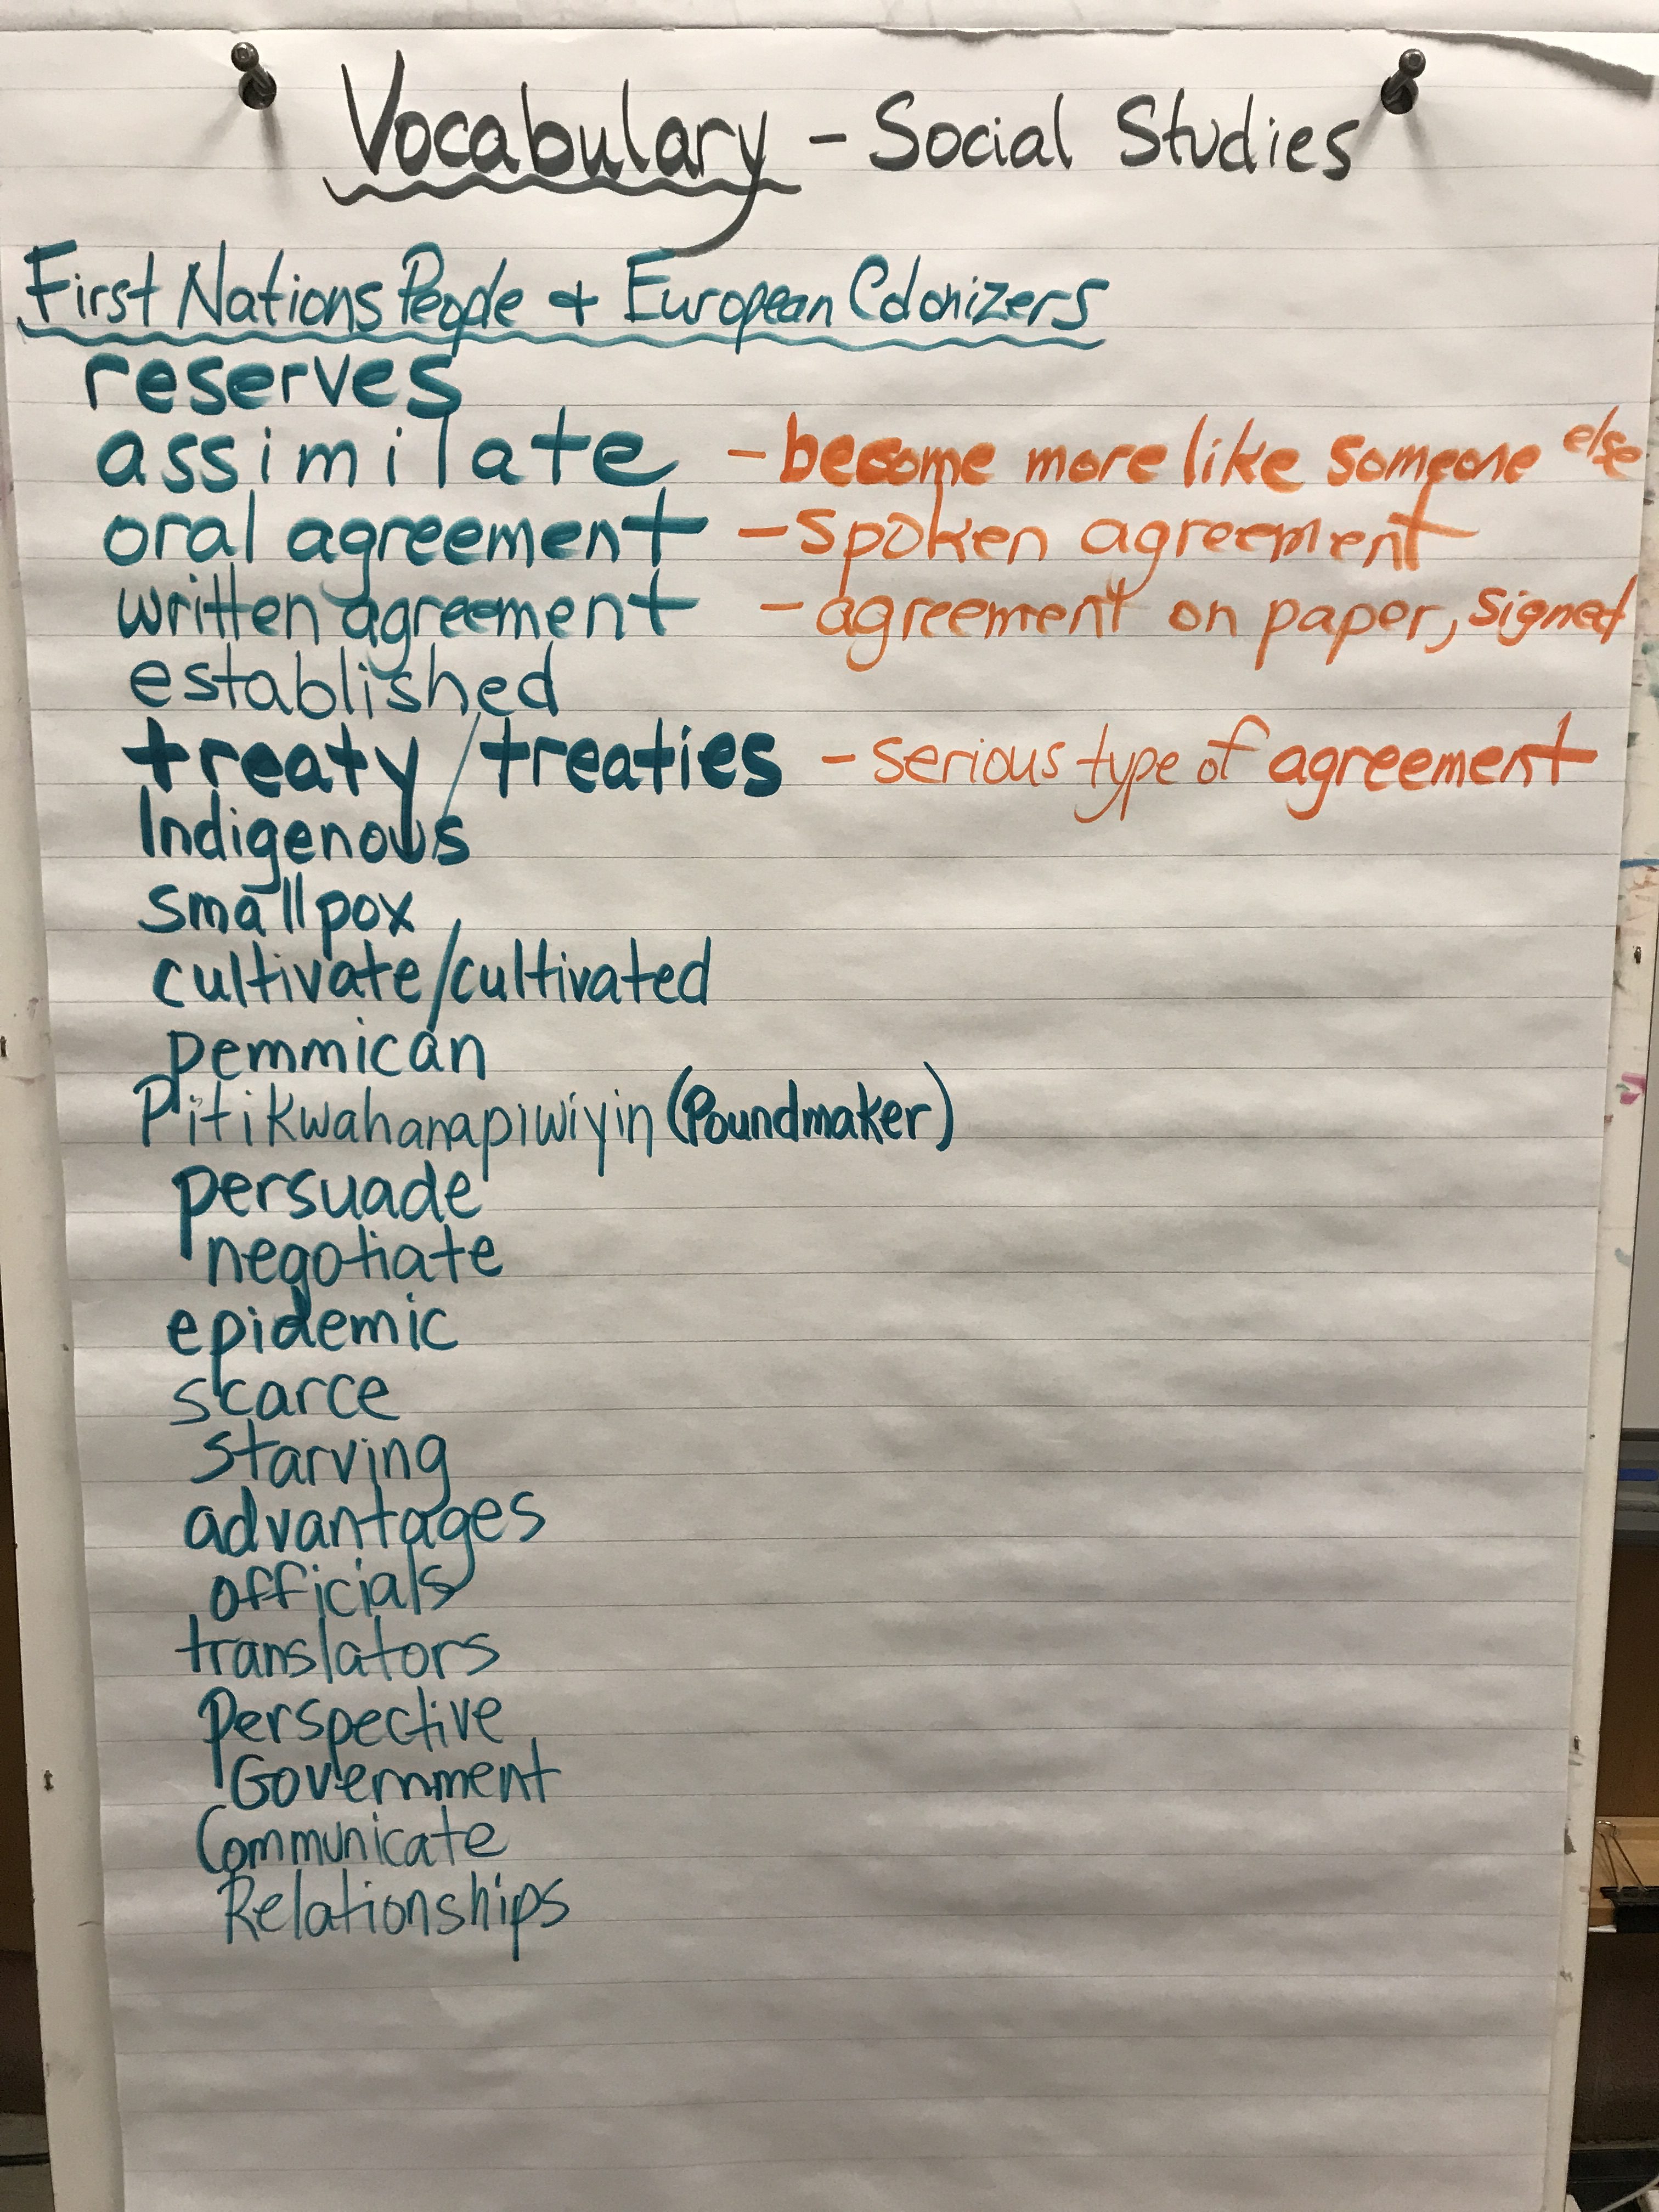 Vocabulary - Social Studies
First Nations People + European Colonizers
reserves
assimilate - become more like someone else
oral agreement - spoken agreement
written agreement - agreement on paper, signed
established
treaty / treaties - serious type of agreement
Indigenous
smallpox
cultivate/cultivated
pemmican
Pitikwahanapiwiyin (Poundmaker)
persuade
negotiate
epidemic
scarce
starving
advantages
officials
translators
Perspective
Government
Communicate
Relationships